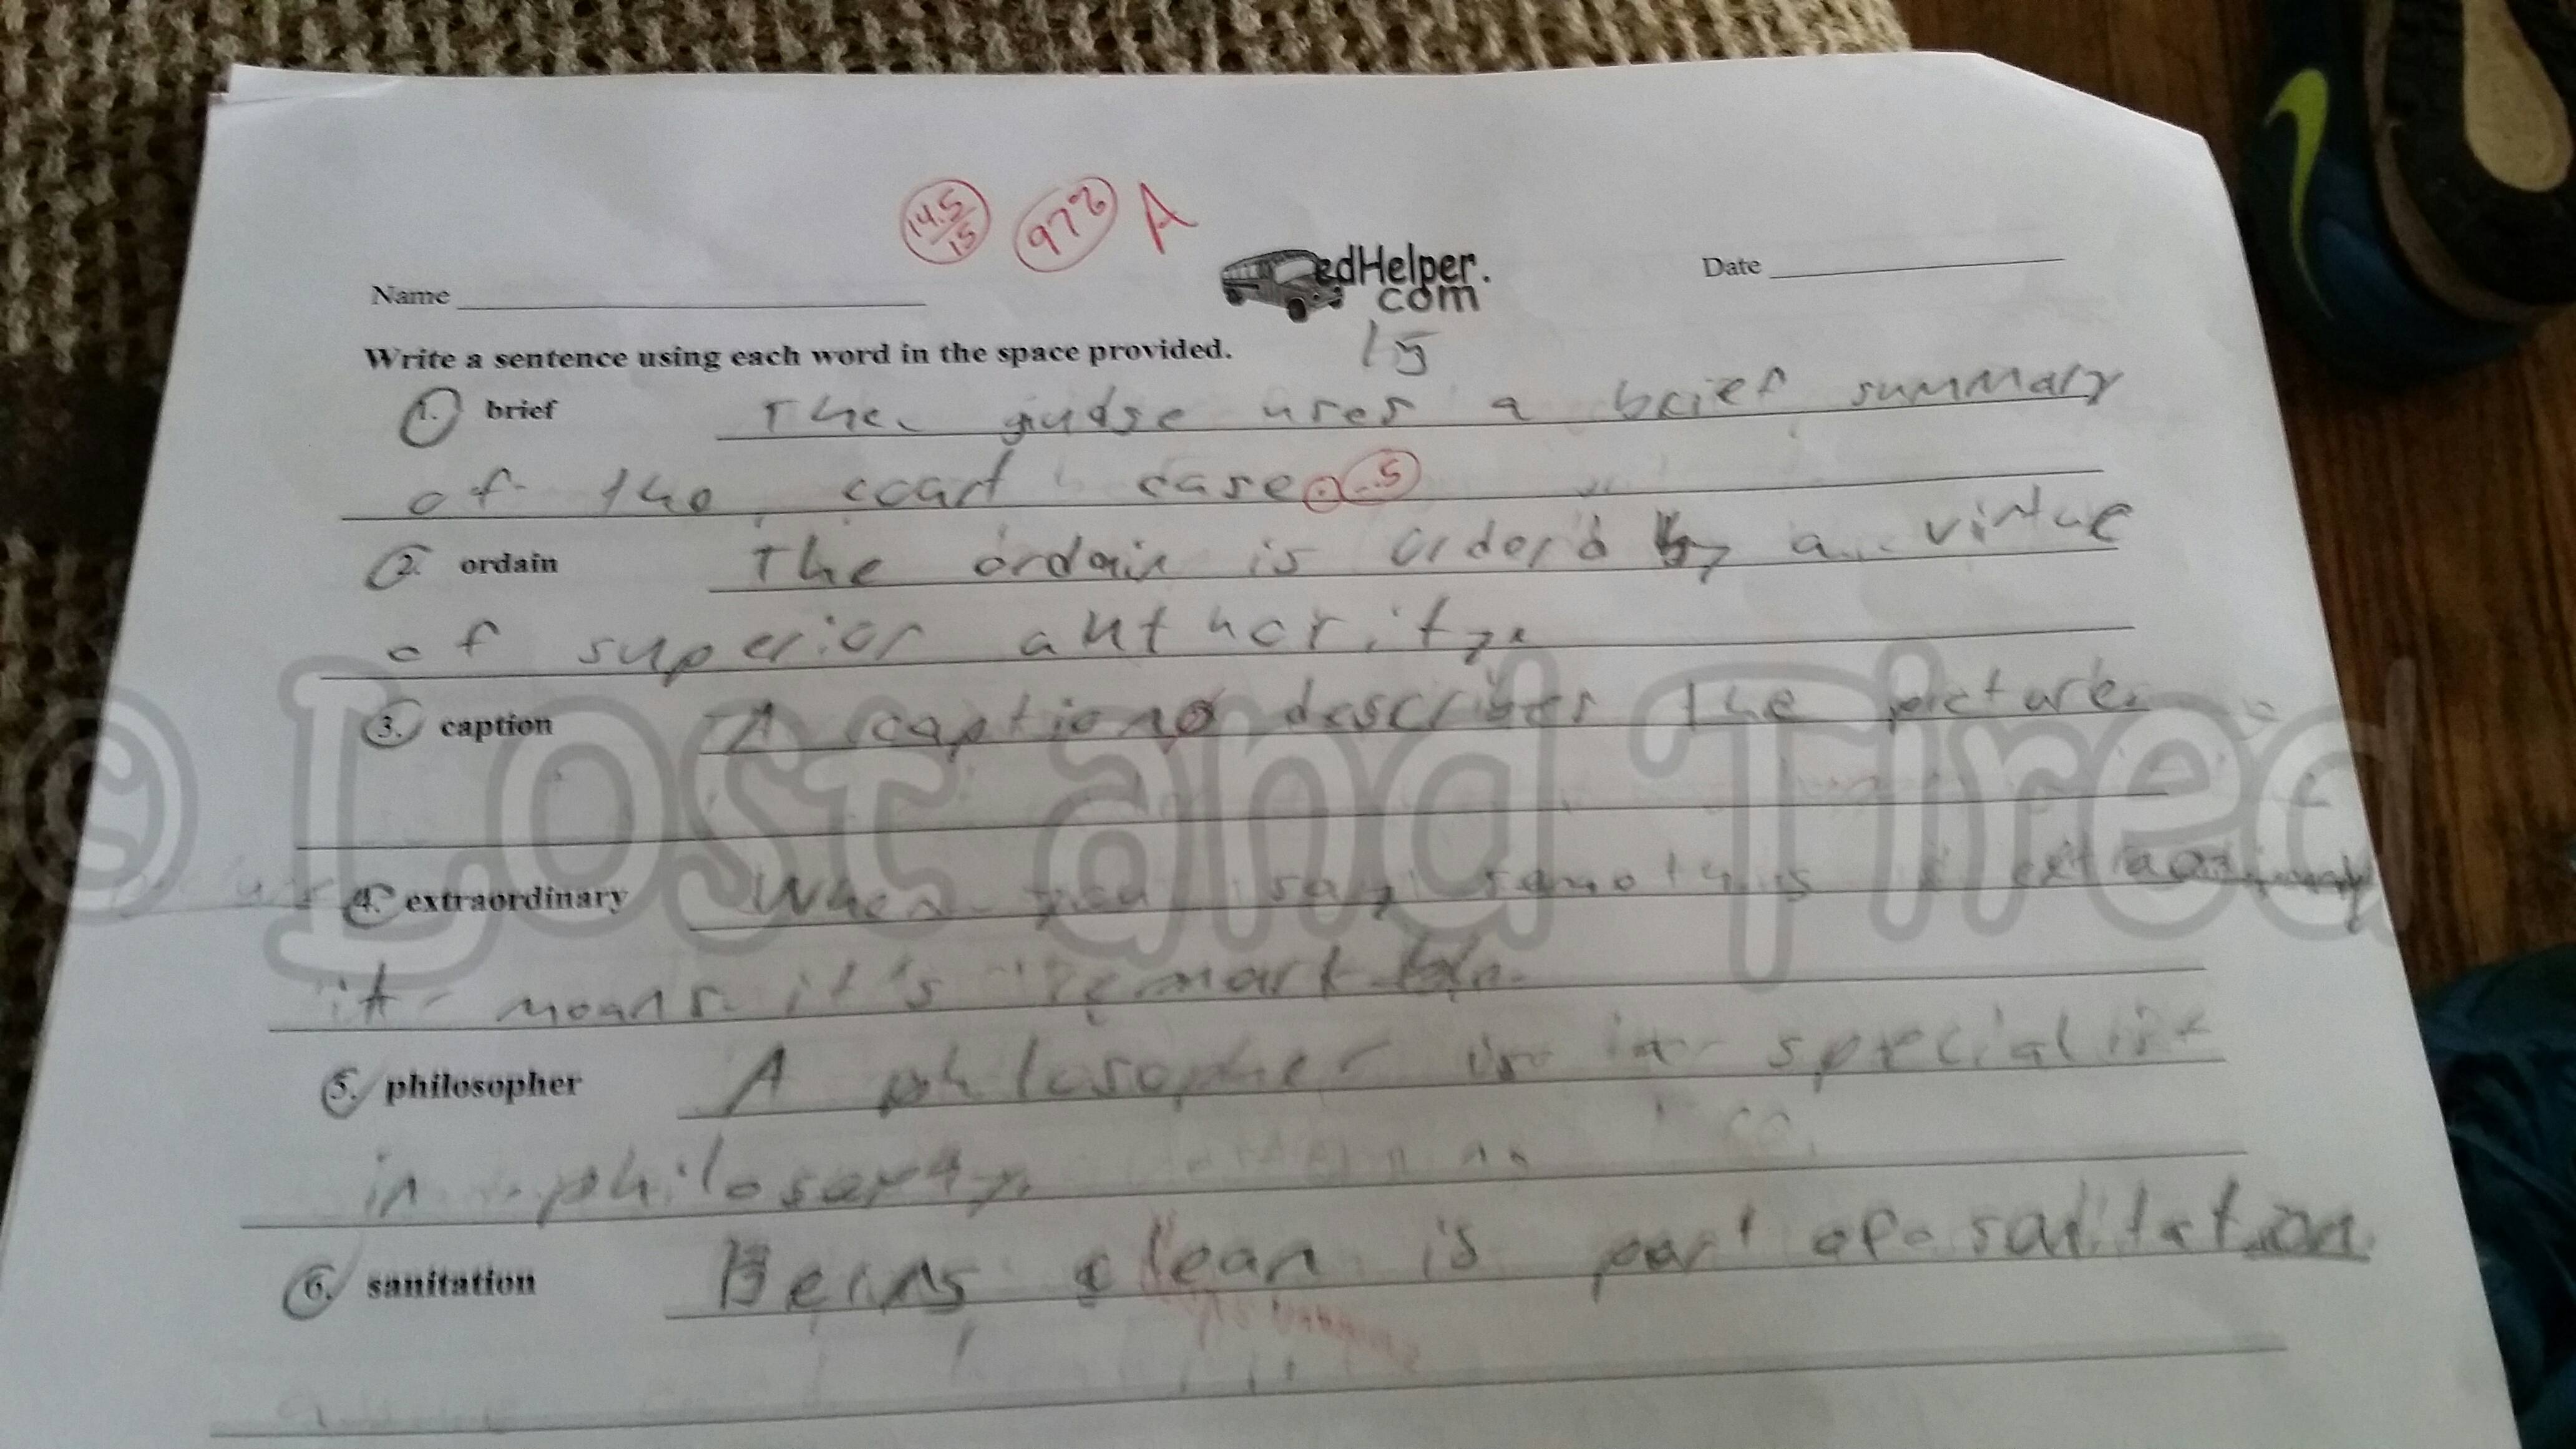 14.5/15 97% A
Name Date
edHelper.
com
Write a sentence using each word in the space provided. 15
1. brief The gudge uses a brief summary
of the court case. -.5
2. ordain The ordain is orderd by a virtue
of superior authority.
3. caption A caption describes the picture.
4. extraordinary When you say extraordinary
it means it's
5. philosopher A philosopher is a specialist
in
6. sanitation Being clean is part of
© Lost and Tired